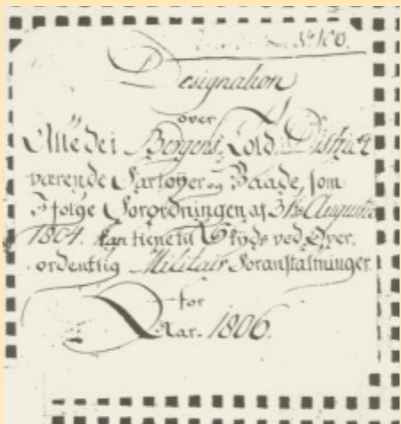 No 100.
Designation
over
Alle de i Bergens Told District
værende Fartøyer og Baade, som
I følge Forordningen af 31te Augusti
1804. kan tiene til Skyds ved Over.
ordentlig Militair Foranstaltninger
for
Aar. 1806.